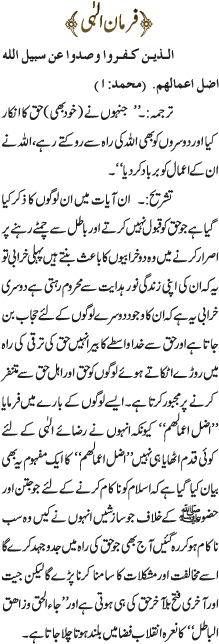 فرمان الٰہی
الذین کفروا وصدوا عن سبیل اللہ
اضل اعمالھم. (محمد:۱)
ترجمہ:۔" جنہوں نے (خود بھی) حق کا انکار
کیا اور دوسروں کو بھی اللہ کی راہ سے روکتے رہے، اللہ نے
ان کے اعمال کو برباد کر دیا"۔
تشریح:۔ ان آیات میں ان لوگوں کا ذکر کیا
گیا ہے جو حق کو قبول نہیں کرتے اور باطل سے چمٹے رہنے پر
اصرار کرنے میں وہ دو خرابیوں کا باعث بنتے ہیں پہلی خرابی تو
یہ کہ ان کی اپنی زندگی نور ہدایت سے محروم رہتی ہے دوسری
خرابی یہ ہے کہ ان کا وجود دوسرے لوگوں کے لئے حجاب بن
جاتا ہے اور حق سے خدا واسطے کا بیر انہیں حق کی ترقی کی راہ
میں روڑے اٹکاتے ہوئے لوگوں کو حق اور اہل حق سے متنفر
کرنے پر مجبور کرتا ہے۔ ایسے لوگوں کے بارے میں فرمایا
"اضل اعمالھم" کیونکہ انہوں نے رضائے الٰہی کے لئے
کوئی قدم اٹھایا ہی نہیں "اضل اعمالھم" کا ایک مفہوم یہ بھی
بیان کیا گیا ہے کہ اسلام کو ناکام کرنے کے لئے جو جتن اور
حضور ﷺ کے خلاف جو سازشیں انہوں نے کیں وہ سب
ناکام ہو کر رہ گئیں آج بھی جو حق کی راہ میں جدوجہد کرے گا
اسے مخالفت اور مشکلات کا سامنا کرنا پڑے گا لیکن جیت
اور آخری فتح بالآخر حق ہی کی ہوتی ہے اور "جاء الحق وزاھق
الباطل" کا نعرہ انقلاب فضا میں بلند ہوتا چلا جاتا ہے۔